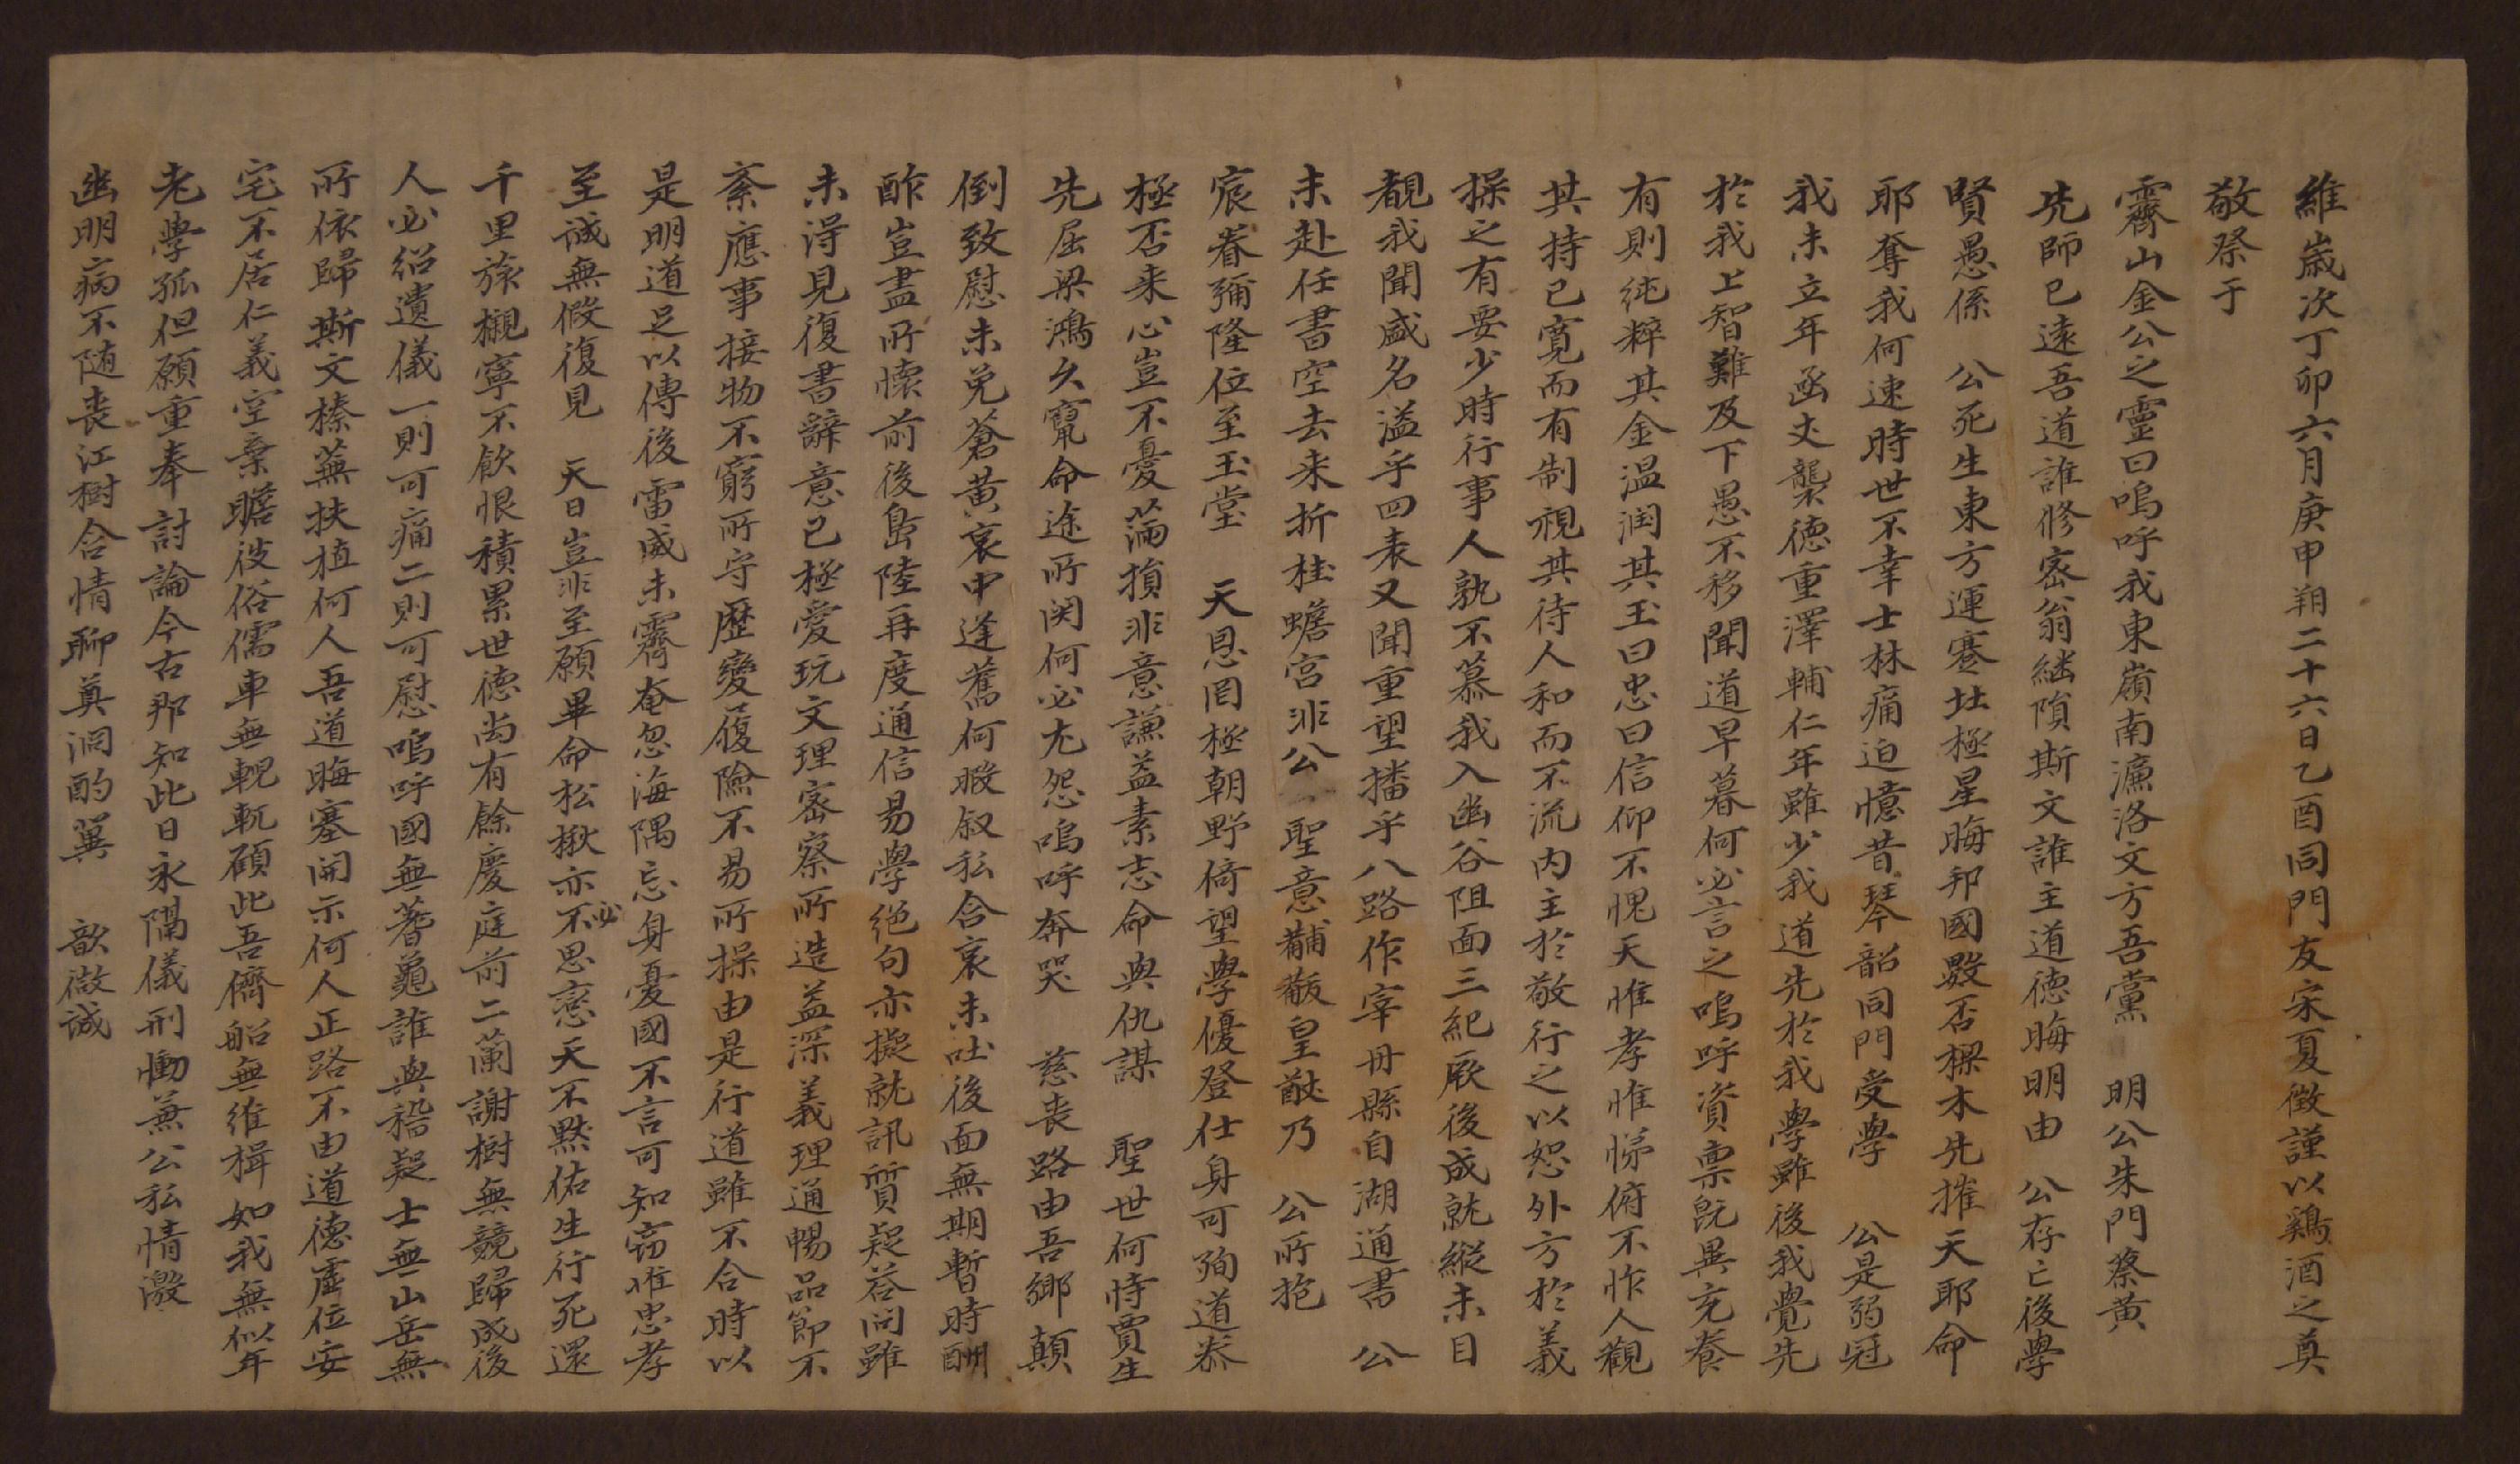 維歲次丁卯六月庚申朔二十六日乙酉同門友宋夏徵謹以鷄酒之奠
敬祭于
霽山金公之靈曰嗚呼我東嶺南濂洛文方吾黨 明公朱門蔡黃
先師已遠吾道誰修密翁繼隕斯文誰主道德晦明由 公存亡後學
賢愚係 公死生東方運蹇北極星晦邦國數否樑木先摧天耶命
耶奪我何速時世不幸士林痛迫憶昔琴韶同門受學 公是弱冠
我未立年函丈襲德重澤輔仁年雖少我道先於我學雖後我覺先
於我上智難及下愚不移聞道早暮何必言之嗚呼資稟旣異充養
有則純粹其金温潤其玉曰忠曰信仰不愧天惟孝惟悌俯不怍人觀
其持己寬而有制視其待人和而不流内主於敬行之以恕外方於義
操之有要少時行事人孰不慕我入幽谷阻面三紀厥後成就縱未目
覩我聞盛名溢乎四表又聞重望播乎八路作宰毋縣自湖通書 公
未赴任書空去来折桂蟾宮非公 聖意黼黻皇猷乃 公所抱
宸眷彌隆位至玉堂 天恩罔極朝野倚望學優登仕身可殉道恭
極否来心豈不憂滿損非意謙益素志命與仇謀 聖世何恃賈生
先屈梁鴻久竄命途所関何必尤怨嗚呼奔哭 慈喪路由吾鄉顛
倒致慰未免蒼黃哀中逢舊何暇叙私含哀未吐後面無期暫時酬
酢豈盡所懷前後島陸再度通信易學絕句亦擬就訊質疑荅問雖
未淂見復書辭意已極愛玩文理密察所造益深義理通暢品節不
紊應事接物不窮所守歷變履險不易所操由是行道雖不合時以
是明道足以傳後雷威未霽奄忽海隅忘身憂國不言可知窃惟忠孝
至誠無假復見 天日豈非至願畢命松楸亦不必思悲天不黙佑生行死還
千里旅櫬寧不飮恨積累世德尚有餘慶庭前二蘭謝樹無競歸成後
人必紹遺儀一則可痛二則可慰嗚呼國無蓍龜誰與稽疑士無山岳無
所依歸斯文榛蕪扶植何人吾道晦塞開示何人正路不由道德虛位安
宅不居仁義空棄瞻彼俗儒車無輗軏顧此吾儕船無維楫如我無似年
老學孤但願重奉討論今古那知此日永隔儀刑慟兼公私情激
幽明病不随喪江樹含情聊奠泂酌冀 歆微誠